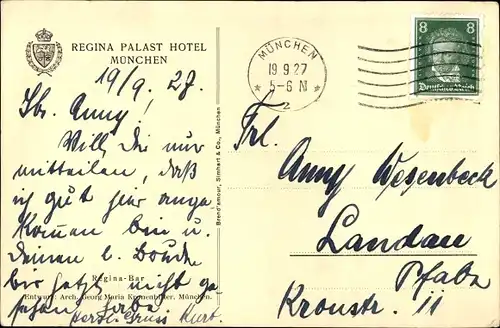 REGINA PALAST HOTEL
MÜNCHEN
19/9. 27.
Anny!
Will Dir nur
mitteilen, daß
ich gut hier ange
kommen bin u.
Deinen l.
bis jetzt nicht ge
sehen habe
herzl. Gruss Kurt.
Regina-Bar
Entwurf: Arch. Georg Maria München.
Brend'amour, Simhart & Co., München
MÜNCHEN
19 9.27
5-6 N
2
8 8
Deutsches Reich
Frl.
Anny Wesenbeck
Landau
Pfalz
Kronstr. 11